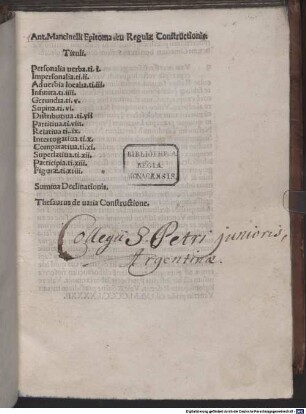 Ant. Mancinelli Epitoma seu Regulæ Constructionis
Tituli.
Personalia verba. ti. i.
Impersonalia. ti. ii.
Aduerbia localia. ti. iii.
Infinita. ti. iiii.
Gerundia. ti. v.
Supina. ti. vi.
Distributiua. ti. vii
Partitiua. ti. viii.
Relatiua ti. ix.
Interrogatiua ti. x.
Comparatiua. ti. xi.
Superlatiua. ti. xii.
Participia. ti. xiii.
Figuræ. ti. xiiii.
Summa Declinationis.
Thesaurus de uaria Constructione.
BIBLIOTHECA
REGIA
MONACENSIS.
Collegii S. Petri junioris,
Argentinæ.